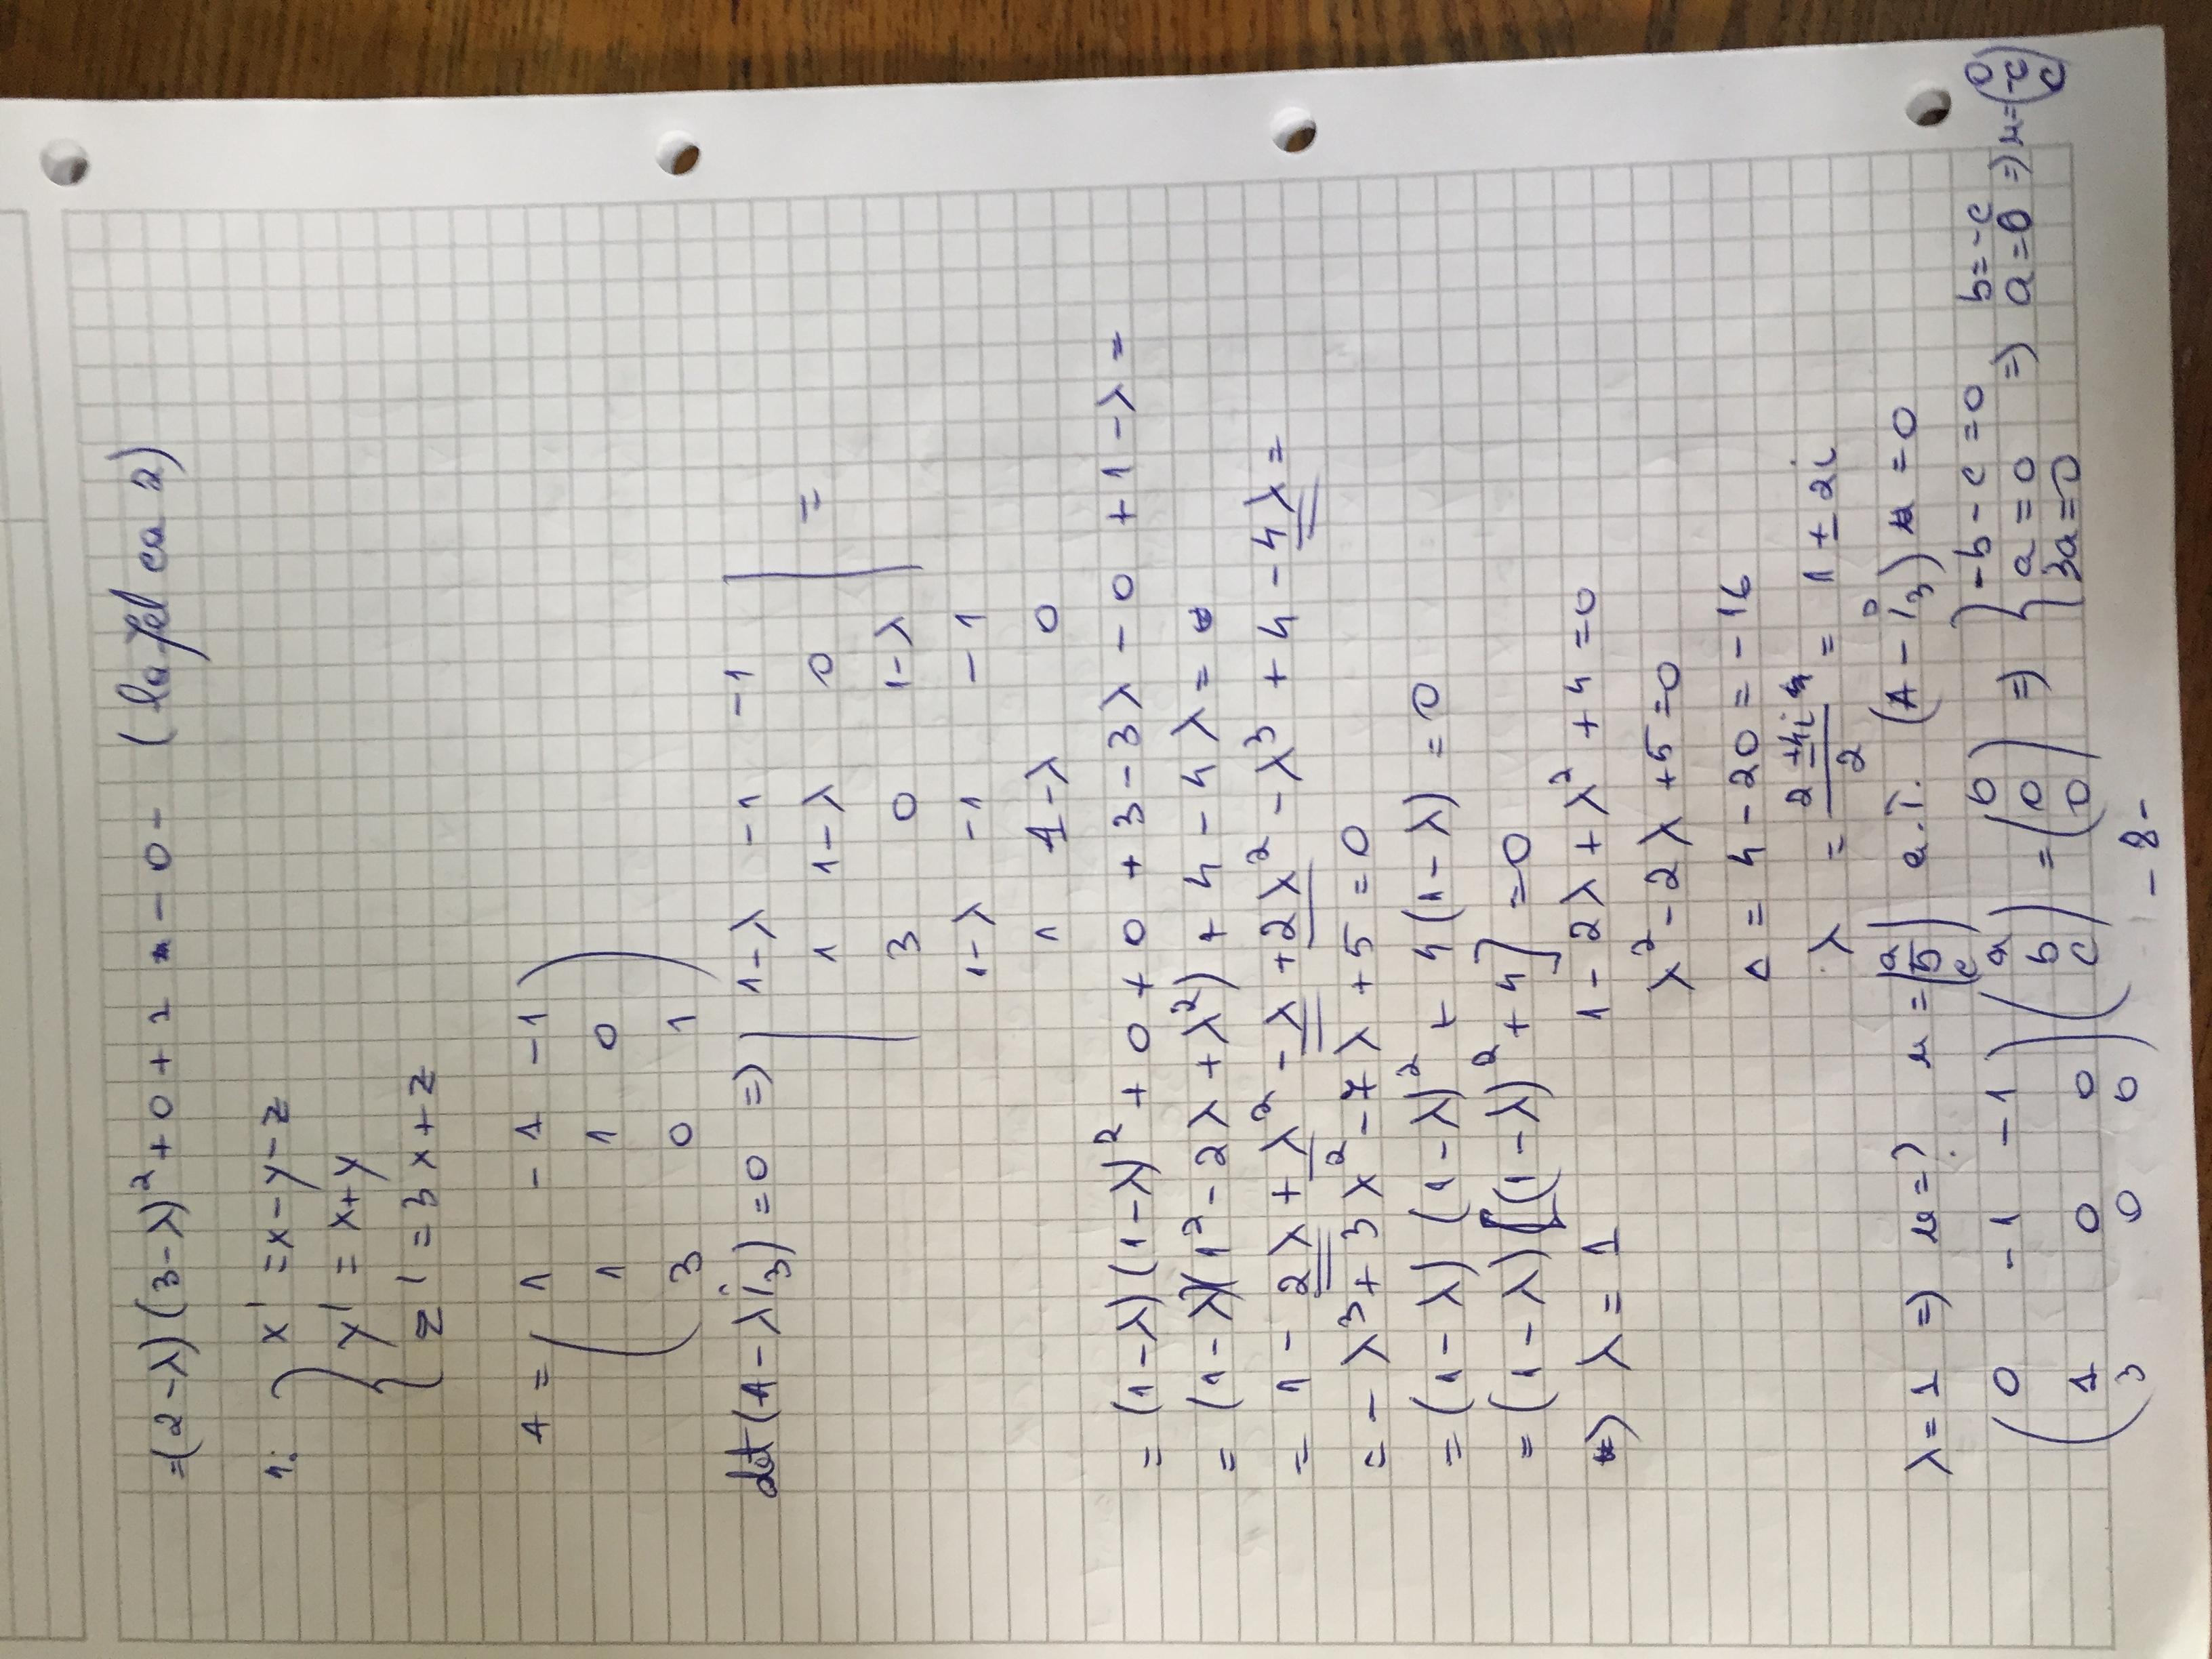 =(2-λ)(3-λ)² + 0 + 1 - 0 - (la fel ca 2)
1: { x' = x - y - z
y' = x + y
z' = 3x + z
A = ( 1 -1 -1
1 1 0
3 0 1 )
det(A - λI₃) = 0 => | 1-λ -1 -1
1 1-λ 0
3 0 1-λ | =
1-λ -1 -1
1 1-λ 0
= (1-λ)(1-λ)² + 0 + 0 + 3 - 3λ - 0 + 1 - λ =
= (1-λ)(1² - 2λ + λ²) + 4 - 4λ =
= 1 - 2λ + λ² - λ + 2λ² - λ³ + 4 - 4λ =
= - λ³ + 3λ² - 7λ + 5 = 0
= (1-λ) (1-λ)² + 4(1-λ) = 0
= (1-λ)[(1-λ)² + 4] = 0
=> λ = 1 1 - 2λ + λ² + 4 = 0
λ² - 2λ + 5 = 0
Δ = 4 - 20 = -16
λ = (2 ± 4i)/2 = 1 ± 2i
λ = 1 => u = ? u = (a b c) a.î. (A - I₃) u = 0
( 0 -1 -1 ) ( a ) = ( 0 ) => { -b - c = 0 b = -c ( 0 )
( 1 0 0 ) ( b ) ( 0 ) a = 0 => a = 0 => u = ( -c )
( 3 0 0 ) ( c ) ( 0 ) 3a = 0 ( c )
- 8 -